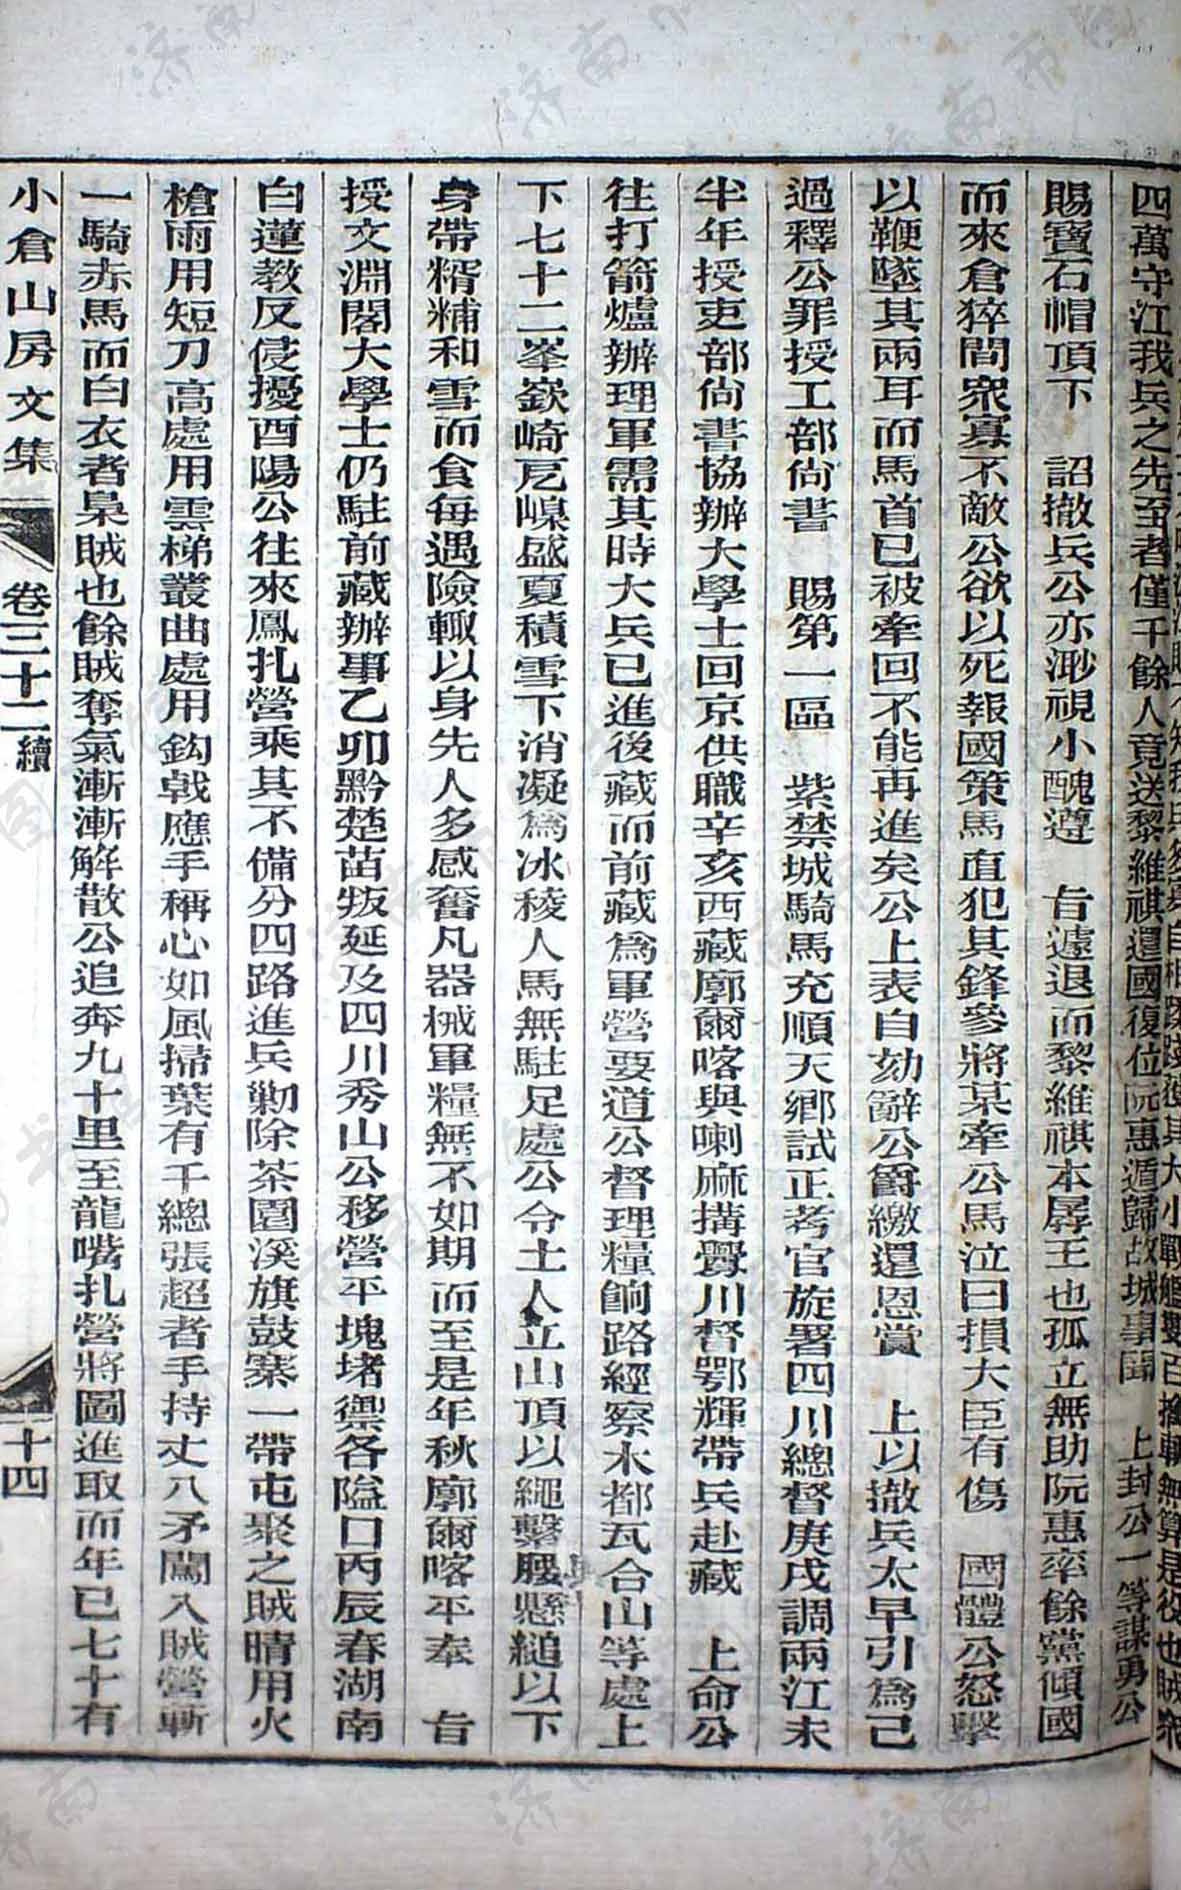 自相蹂踐獲其大小戰艦雙百擒斬無算是役也賊衆
四萬守江我兵之先至者僅千餘人竟送黎維祺還國復位阮惠遁歸故城事聞　上封公一等謀勇公
賜寶石帽頂下　詔撤兵公亦渺視小醜遵　旨遽退而黎維祺本孱王也孤立無助阮惠率餘黨傾國
而來倉猝間衆寡不敵公欲以死報國策馬直犯其鋒參將某牽公馬泣曰損大臣有傷　國體公怒擊
以鞭墜其兩耳而馬首已被牽回不能再進矣公上表自劾辭公爵繳還恩賞　上以撤兵太早引爲己
過釋公罪授工部尙書　賜第一區　紫禁城騎馬充順天鄉試正考官旋署四川總督庚戌調兩江未
半年授吏部尙書協辦大學士回京供職辛亥西藏廓爾喀與喇麻搆釁川督鄂輝帶兵赴藏　上命公
往打箭爐辦理軍需其時大兵已進後藏而前藏爲軍營要道公督理糧餉路經察木都瓦合山等處上
下七十二峯嶔崎巵嵲盛夏積雪下消凝爲冰稜人馬無駐足處公令土人立山頂以繩繫腰懸縋以下
身帶糈糒和雪而食每遇險輒以身先人多感奮凡器械軍糧無不如期而至是年秋廓爾喀平奉　旨
授文淵閣大學士仍駐前藏辦事乙卯黔楚苗叛延及四川秀山公移營平塊堵禦各隘口丙辰春湖南
白蓮教反侵擾酉陽公往來鳳扎營乘其不備分四路進兵勦除茶園溪旗鼓寨一帶屯聚之賊晴用火
槍雨用短刀高處用雲梯叢曲處用鈎戟應手稱心如風掃葉有千總張超者手持丈八矛闖入賊營斬
一騎赤馬而白衣者梟賊也餘賊奪氣漸漸解散公追奔九十里至龍嘴扎營將圖進取而年已七十有
小倉山房文集　卷三十二續　十四